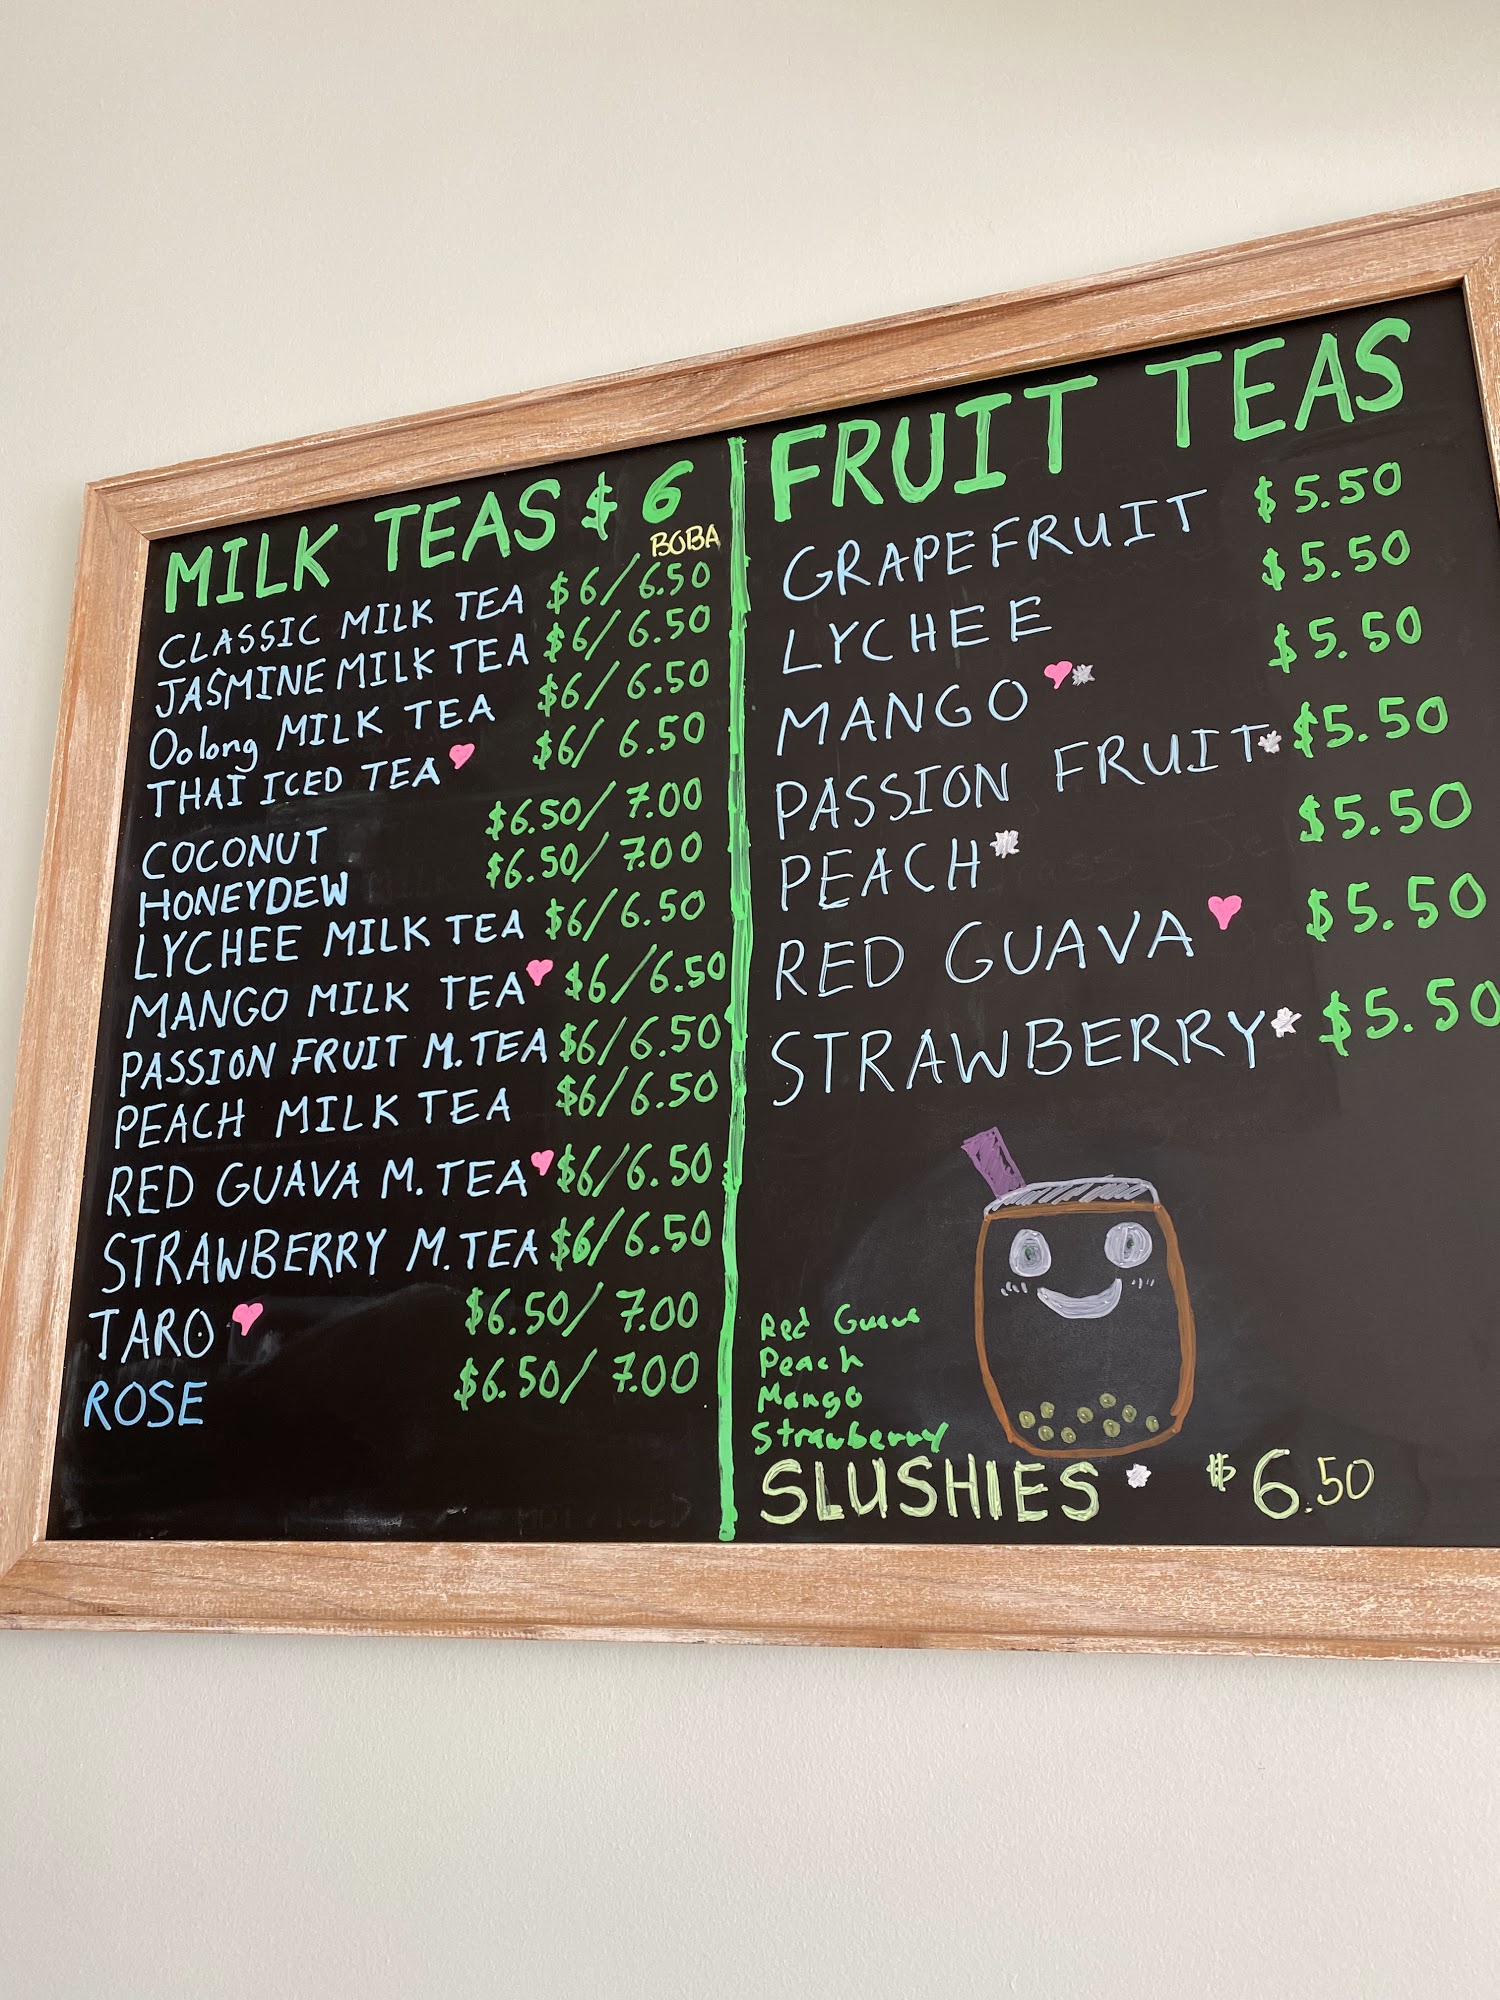 MILK TEAS $6
BOBA
CLASSIC MILK TEA $6/6.50
JASMINE MILK TEA $6/6.50
Oolong MILK TEA $6/6.50
THAI ICED TEA $6/6.50
COCONUT $6.50/7.00
HONEYDEW $6.50/7.00
LYCHEE MILK TEA $6/6.50
MANGO MILK TEA $6/6.50
PASSION FRUIT M.TEA $6/6.50
PEACH MILK TEA $6/6.50
RED GUAVA M.TEA $6/6.50
STRAWBERRY M.TEA $6/6.50
TARO $6.50/7.00
ROSE $6.50/7.00
FRUIT TEAS
GRAPEFRUIT $5.50
LYCHEE $5.50
MANGO* $5.50
PASSION FRUIT* $5.50
PEACH* $5.50
RED GUAVA $5.50
STRAWBERRY* $5.50
Red Guava
Peach
Mango
Strawberry
SLUSHIES* $6.50